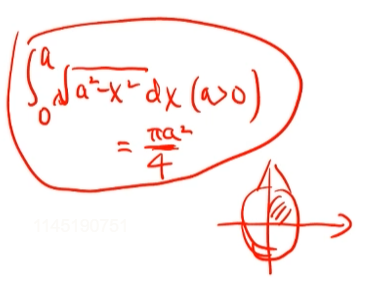 ∫₀ᵃ √a²-x² dx (a>0)
= πa²/4
1145190751